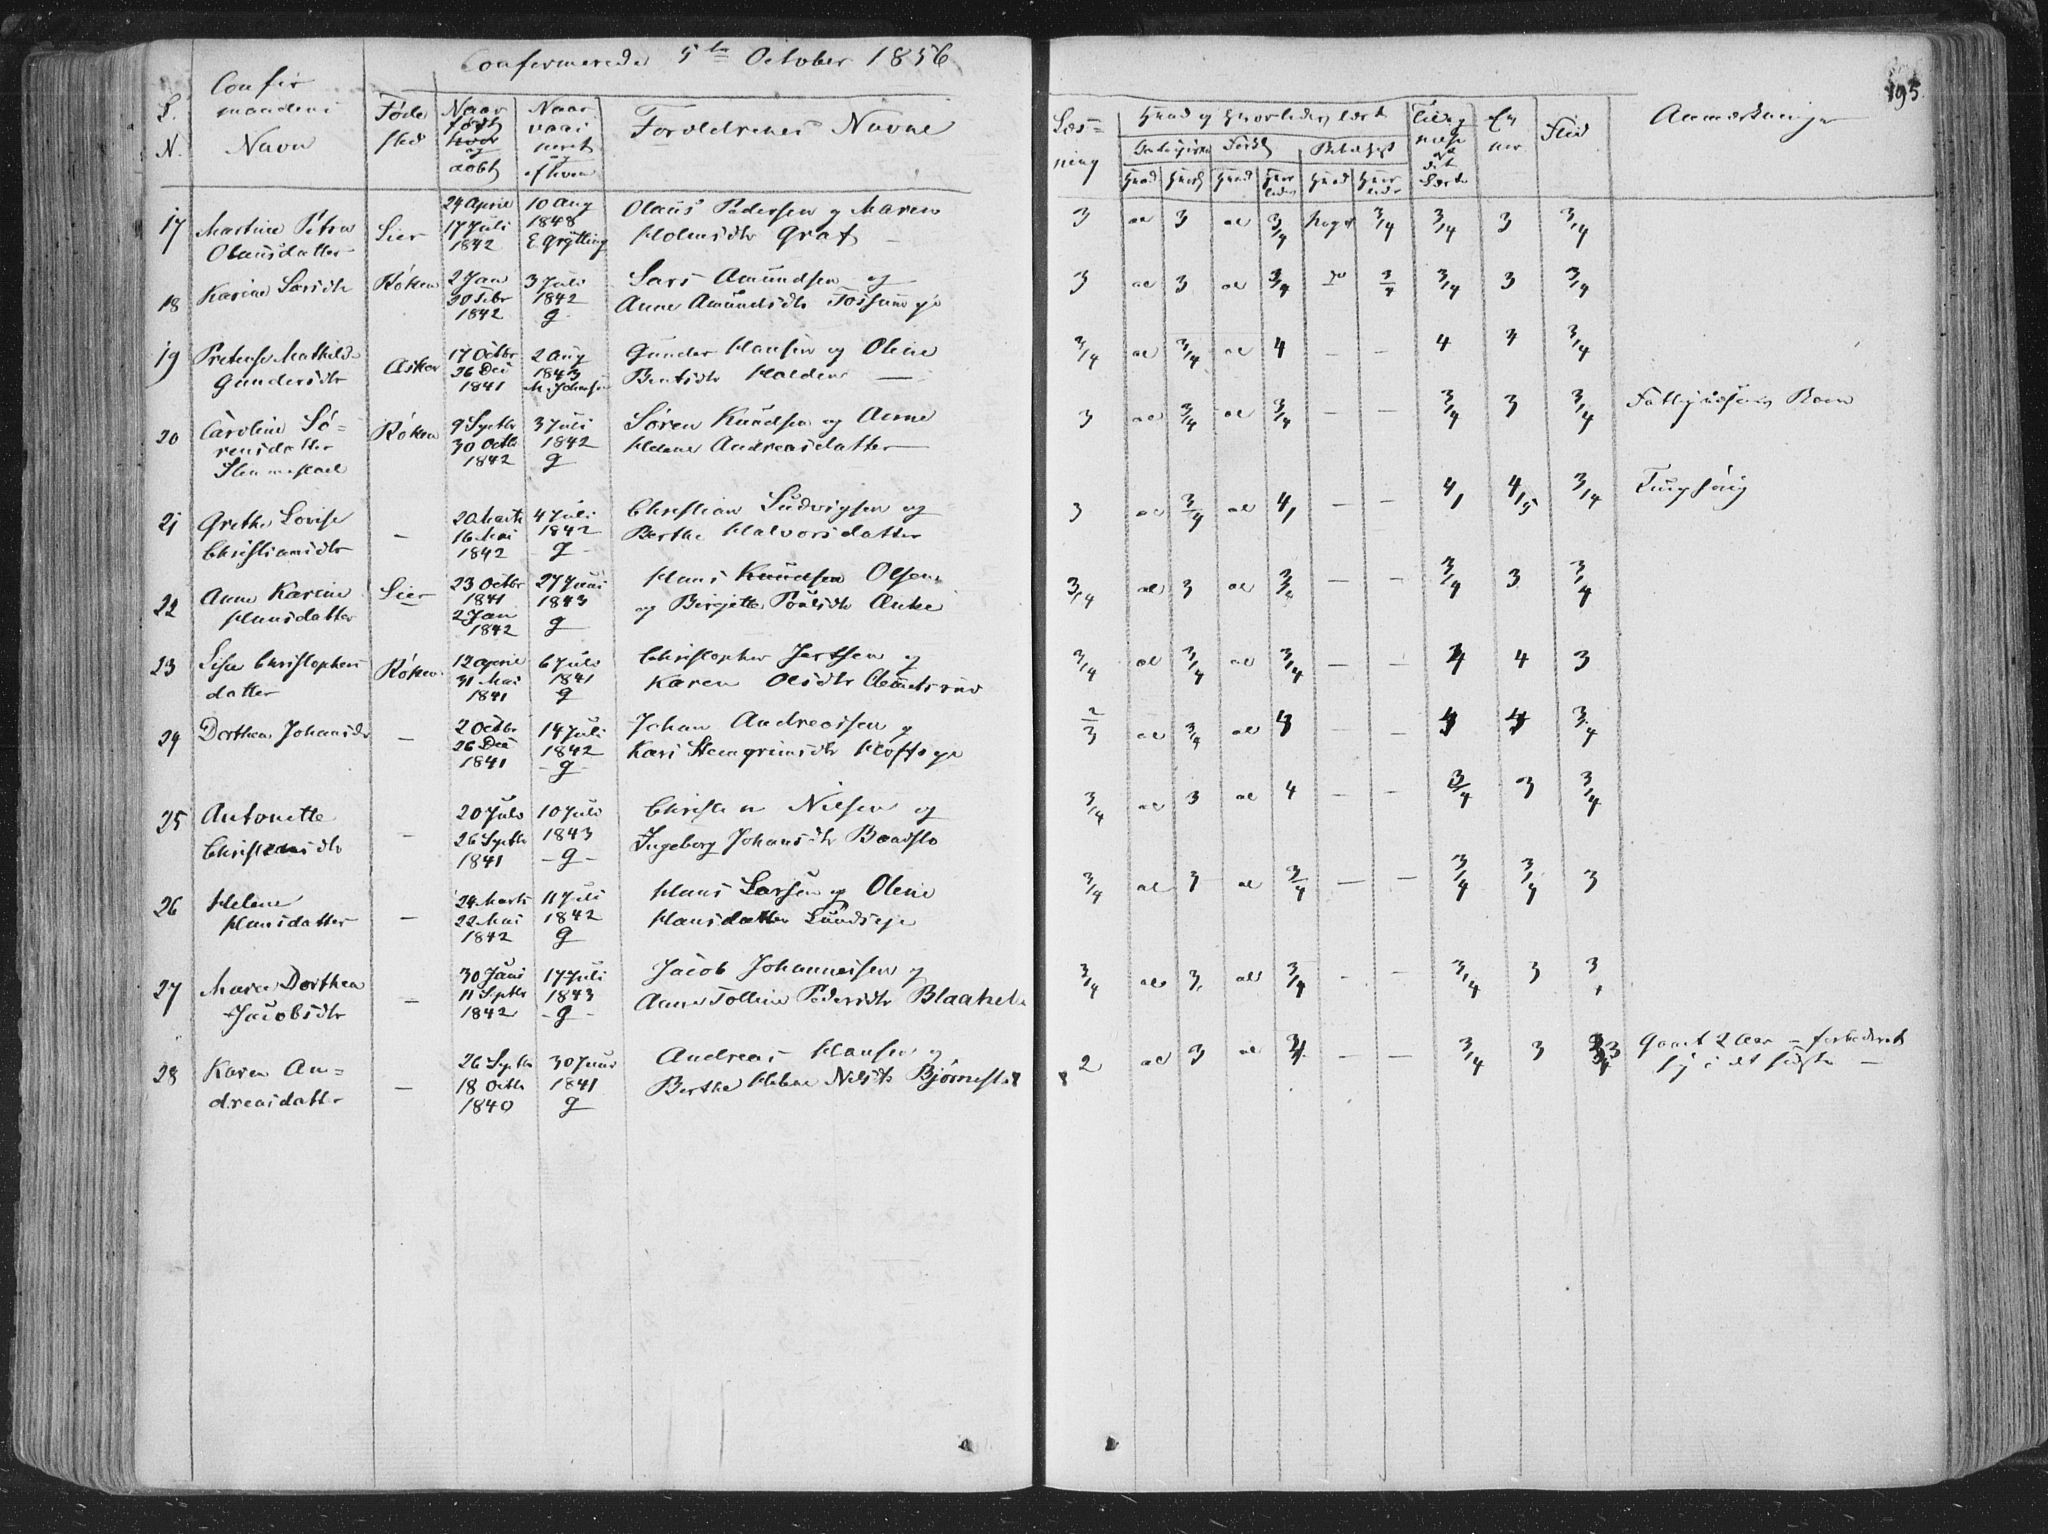 Confirmerede 5te October 1856
195.
L. N.
Confirmandens Navn
Føde sted
Naar født og døbt
Naar vacineret og af hvem
Forældrenes Navne
Læsning
Hvad og hvorledes lært
Hvad Hvorl Hvad Hvorledes Hvad Hvorledes
Evner
Flid
Anmærkninger
17 Martine Petra Olausdatter Lier 24 April 17 Juli 1842 10 Aug 1848 E. Grøtting Olaus Pedersen og Maren Holmsdtr Graf 3 al 3 al 3/4 noget 3/4 3/4 3 3/4
18 Karine Larsdtr Røken 2 Jan 20 Febr 1842 3 Juli 1842 g Lars Amundsen og Anne Amundsdtr Fossum eje 3 al 3 al 3/4 3/4 3/4 3 3/4
19 Mathilde Gundersdtr Asker 17 Octbr 26 Dec 1841 2 Aug 1843 M. Johnsen Gunder Hansen og Oline Berntsdtr Holden — 3/4 al 3/4 al 4 — — 4 4 3/4
20 Caroline Sørensdatter Slemmestad Røken 9 Septbr 30 Octb 1842 3 Juli 1842 g Søren Knudsen og Anne Helene Andreasdatter 3 al 3/4 al 3/4 — — 3/4 3 3/4
21 Grethe Lovise Christiansdtr — 20 Marts 16 Mai 1842 4 Juli 1842 g Christian Ludvigsen og Berthe Halvorsdatter 3 al 3/4 al 4 — — 4 4/5 3/4 Tunghørig
22 Anne Karine Hansdatter Lier 23 Octbr 1841 2 Jan 1842 27 Juni 1843 g Hans Knudsen Olsen og Birgitte Poulsdtr 3/4 al 3 al 3/4 — — 3/4 3 3/4
23 Lise Christophersdatter Røken 12 April 31 Mai 1841 6 Juli 1841 g Christopher og Karen Olsdtr Clemetsrud 3/4 al 3/4 al 3/4 — — 4 4 3
24 Dorthea Johansdtr — 2 Octbr 26 Dec 1841 14 Juli 1842 g Johan Andreassen og Kari Stengrimsdtr 2/3 al 3/4 al — — 3/4
25 Antonette Christensdtr — 20 Juli 26 Septbr 1841 10 Juli 1843 g Christen Nilsen og Ingeborg Johansdtr Baadstø 3/4 al 3 al 4 — — 3/4 3 3/4
26 Helene Hansdatter — 24 Marts 22 Mai 1842 11 Juli 1842 g Hans Larsen og Oline Hansdatter Lundseje 3/4 al 3 al 3/4 — — 3/4 3/4 3
27 Maren Dorthea Jacobsdtr — 30 Juni 11 Septbr 1842 17 Juli 1843 g Jacob Johannessen og Anne Pedersdtr 3/4 al 3 al 3/4 — — 3/4 3 3
28 Karen Andreasdatter — 26 Septbr 18 Octbr 1840 30 Juni 1841 g Andreas Hansen og Berthe Helene Nilsdtr Bjørnestad 2 al 3 al — — 3/4 3 Gaaet 2 Aar — forbedret sig i det sidste —